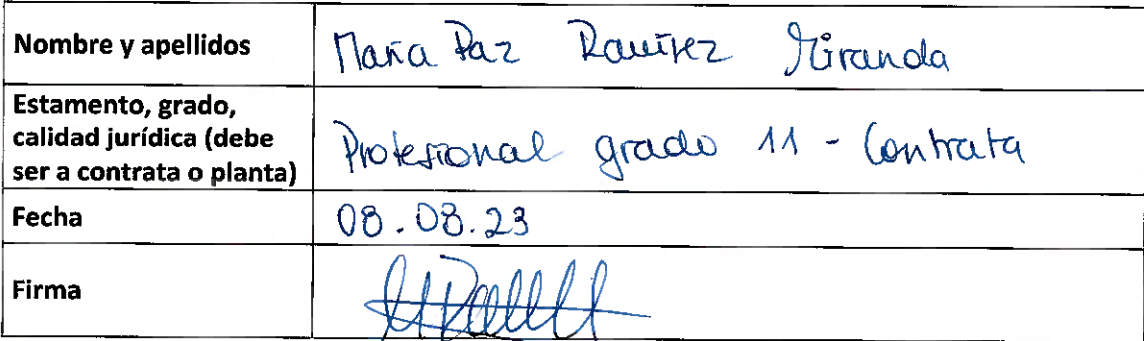 Nombre y apellidos
María Paz Ramírez Miranda
Estamento, grado,
calidad jurídica (debe
ser a contrata o planta)
Profesional grado 11 - Contrata
Fecha
08.08.23
Firma